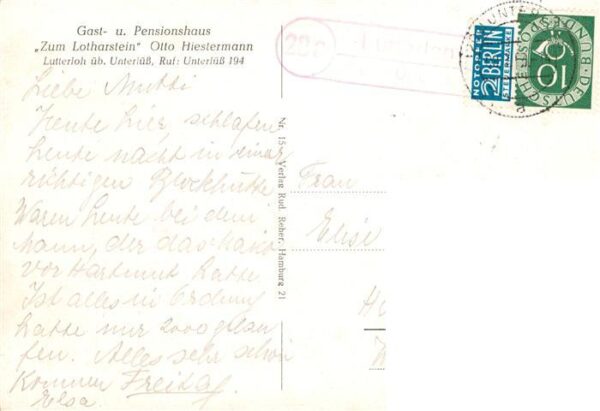 Gast- u. Pensionshaus
„Zum Lotharstein" Otto Hiestermann
Lutterloh üb. Unterlüß, Ruf: Unterlüß 194
Liebe Mutti
Heute hier, schlafen
heute nacht in einer
richtigen Blockhütte
Waren heute bei dem
Mann, der das Haus
vor Hartmut hatte
Ist alles in Ordnung
hatte nur 2000 gelau
fen. Alles sehr schön
Kommen Freitag.
Elsa
Nr. 15 Verlag Rud. Reher, Hamburg 21
Frau
Elise
20c
NOTOPFER
2 BERLIN
STEUERMARKE
DEUTSCHE BUNDESPOST
10